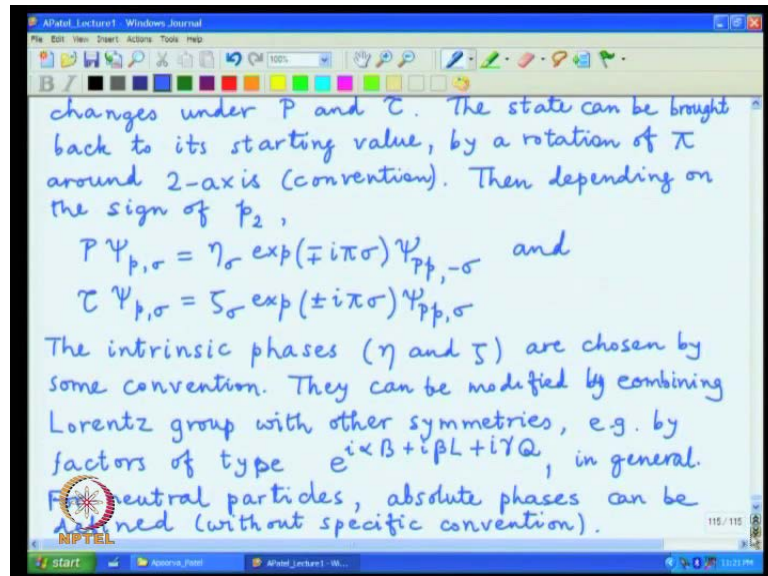 APatel_Lecture1 - Windows Journal
File Edit View Insert Actions Tools Help
100%
B I
changes under P and τ. The state can be brought
back to its starting value, by a rotation of π
around 2-axis (convention). Then depending on
the sign of p₂,
P Ψ_{p,σ} = η_σ exp(∓iπσ) Ψ_{Pp,-σ} and
τ Ψ_{p,σ} = ζ_σ exp(±iπσ) Ψ_{Pp,σ}
The intrinsic phases (η and ζ) are chosen by
some convention. They can be modified by combining
Lorentz group with other symmetries, e.g. by
factors of type e^{iαB+iβL+iγQ}, in general.
neutral particles, absolute phases can be
(without specific convention).
NPTEL
115/115
start Apoorva_Patel APatel_Lecture1 - Wi... 11:21 PM